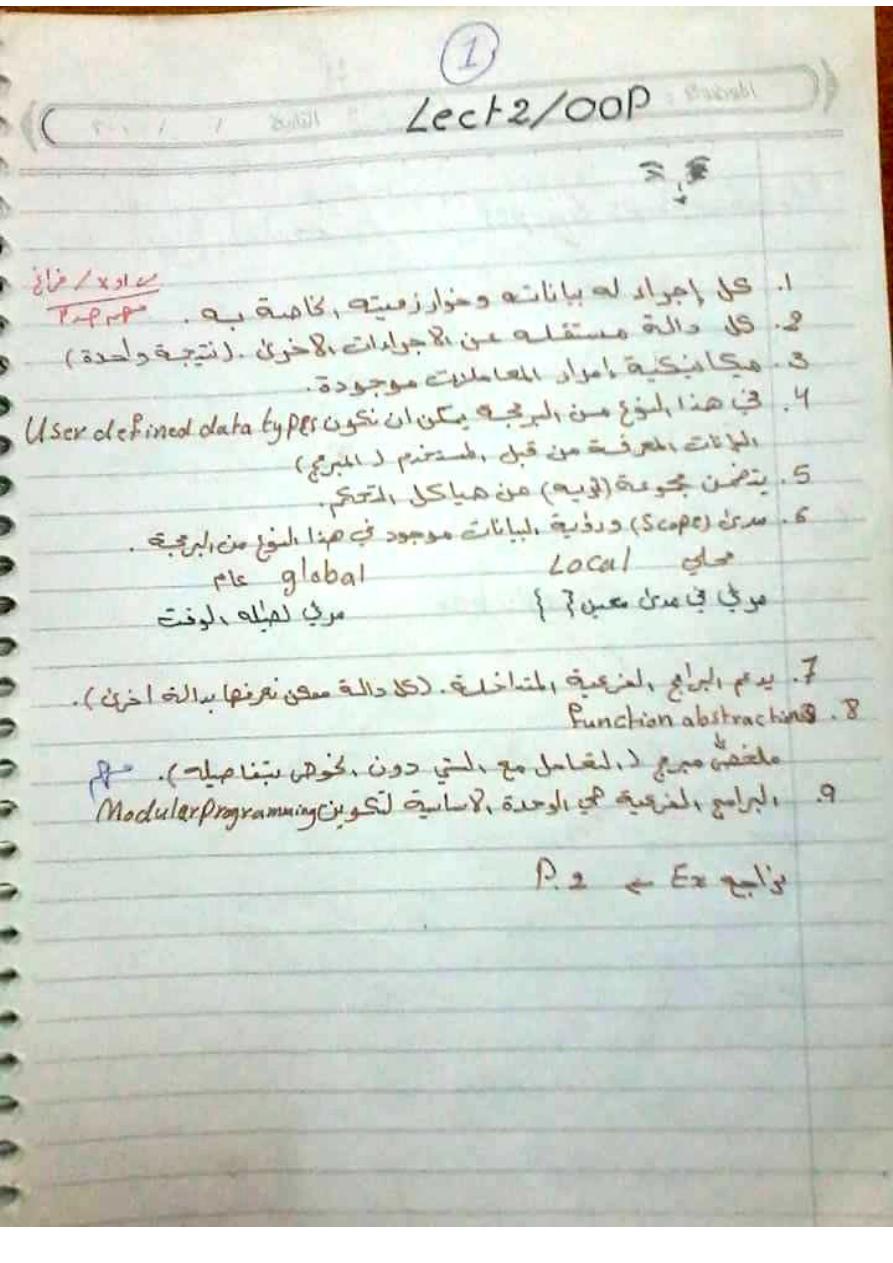 1
Lect2/OOP
1. كل إجراء له بياناته وخوارزميته الخاصة به.
✓ او x / فراغ
مهم جداً
2. كل دالة مستقله عن الاجراءات الاخرى. (نتيجة واحدة)
3. ميكانيكية إمرار المعاملات موجودة.
4. في هذا النوع من البرمجة يمكن ان نكون User defined data types
البيانات المعرفة من قبل المستخدم (المبرمج)
5. يتضمن مجموعة من هياكل التحكم.
6. مدى (Scope) ورؤية البيانات موجود في هذا النوع من البرمجة.
محلي Local عام global
مرئي في مدى معين { } مرئي لطيله الوقت
7. يدعم البرامج الفرعية المتداخلة. (كل دالة ممكن نعرفها بدالة اخرى).
8. function abstraction
ملخص مبرمج (التعامل مع الشي دون الخوض بتفاصيله). مهم
9. البرامج الفرعية هي الوحدة الاساسية لتكوين Modular Programming
نراجع Ex ← P.2